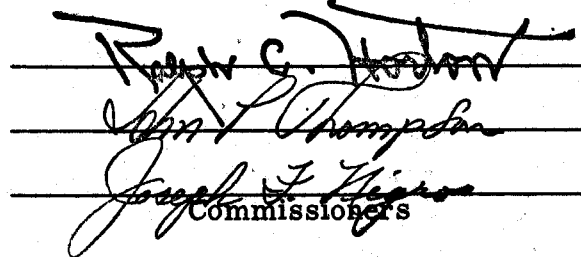 Ralph C. Horton
John P. Thompson
Joseph F. Nigro
Commissioners